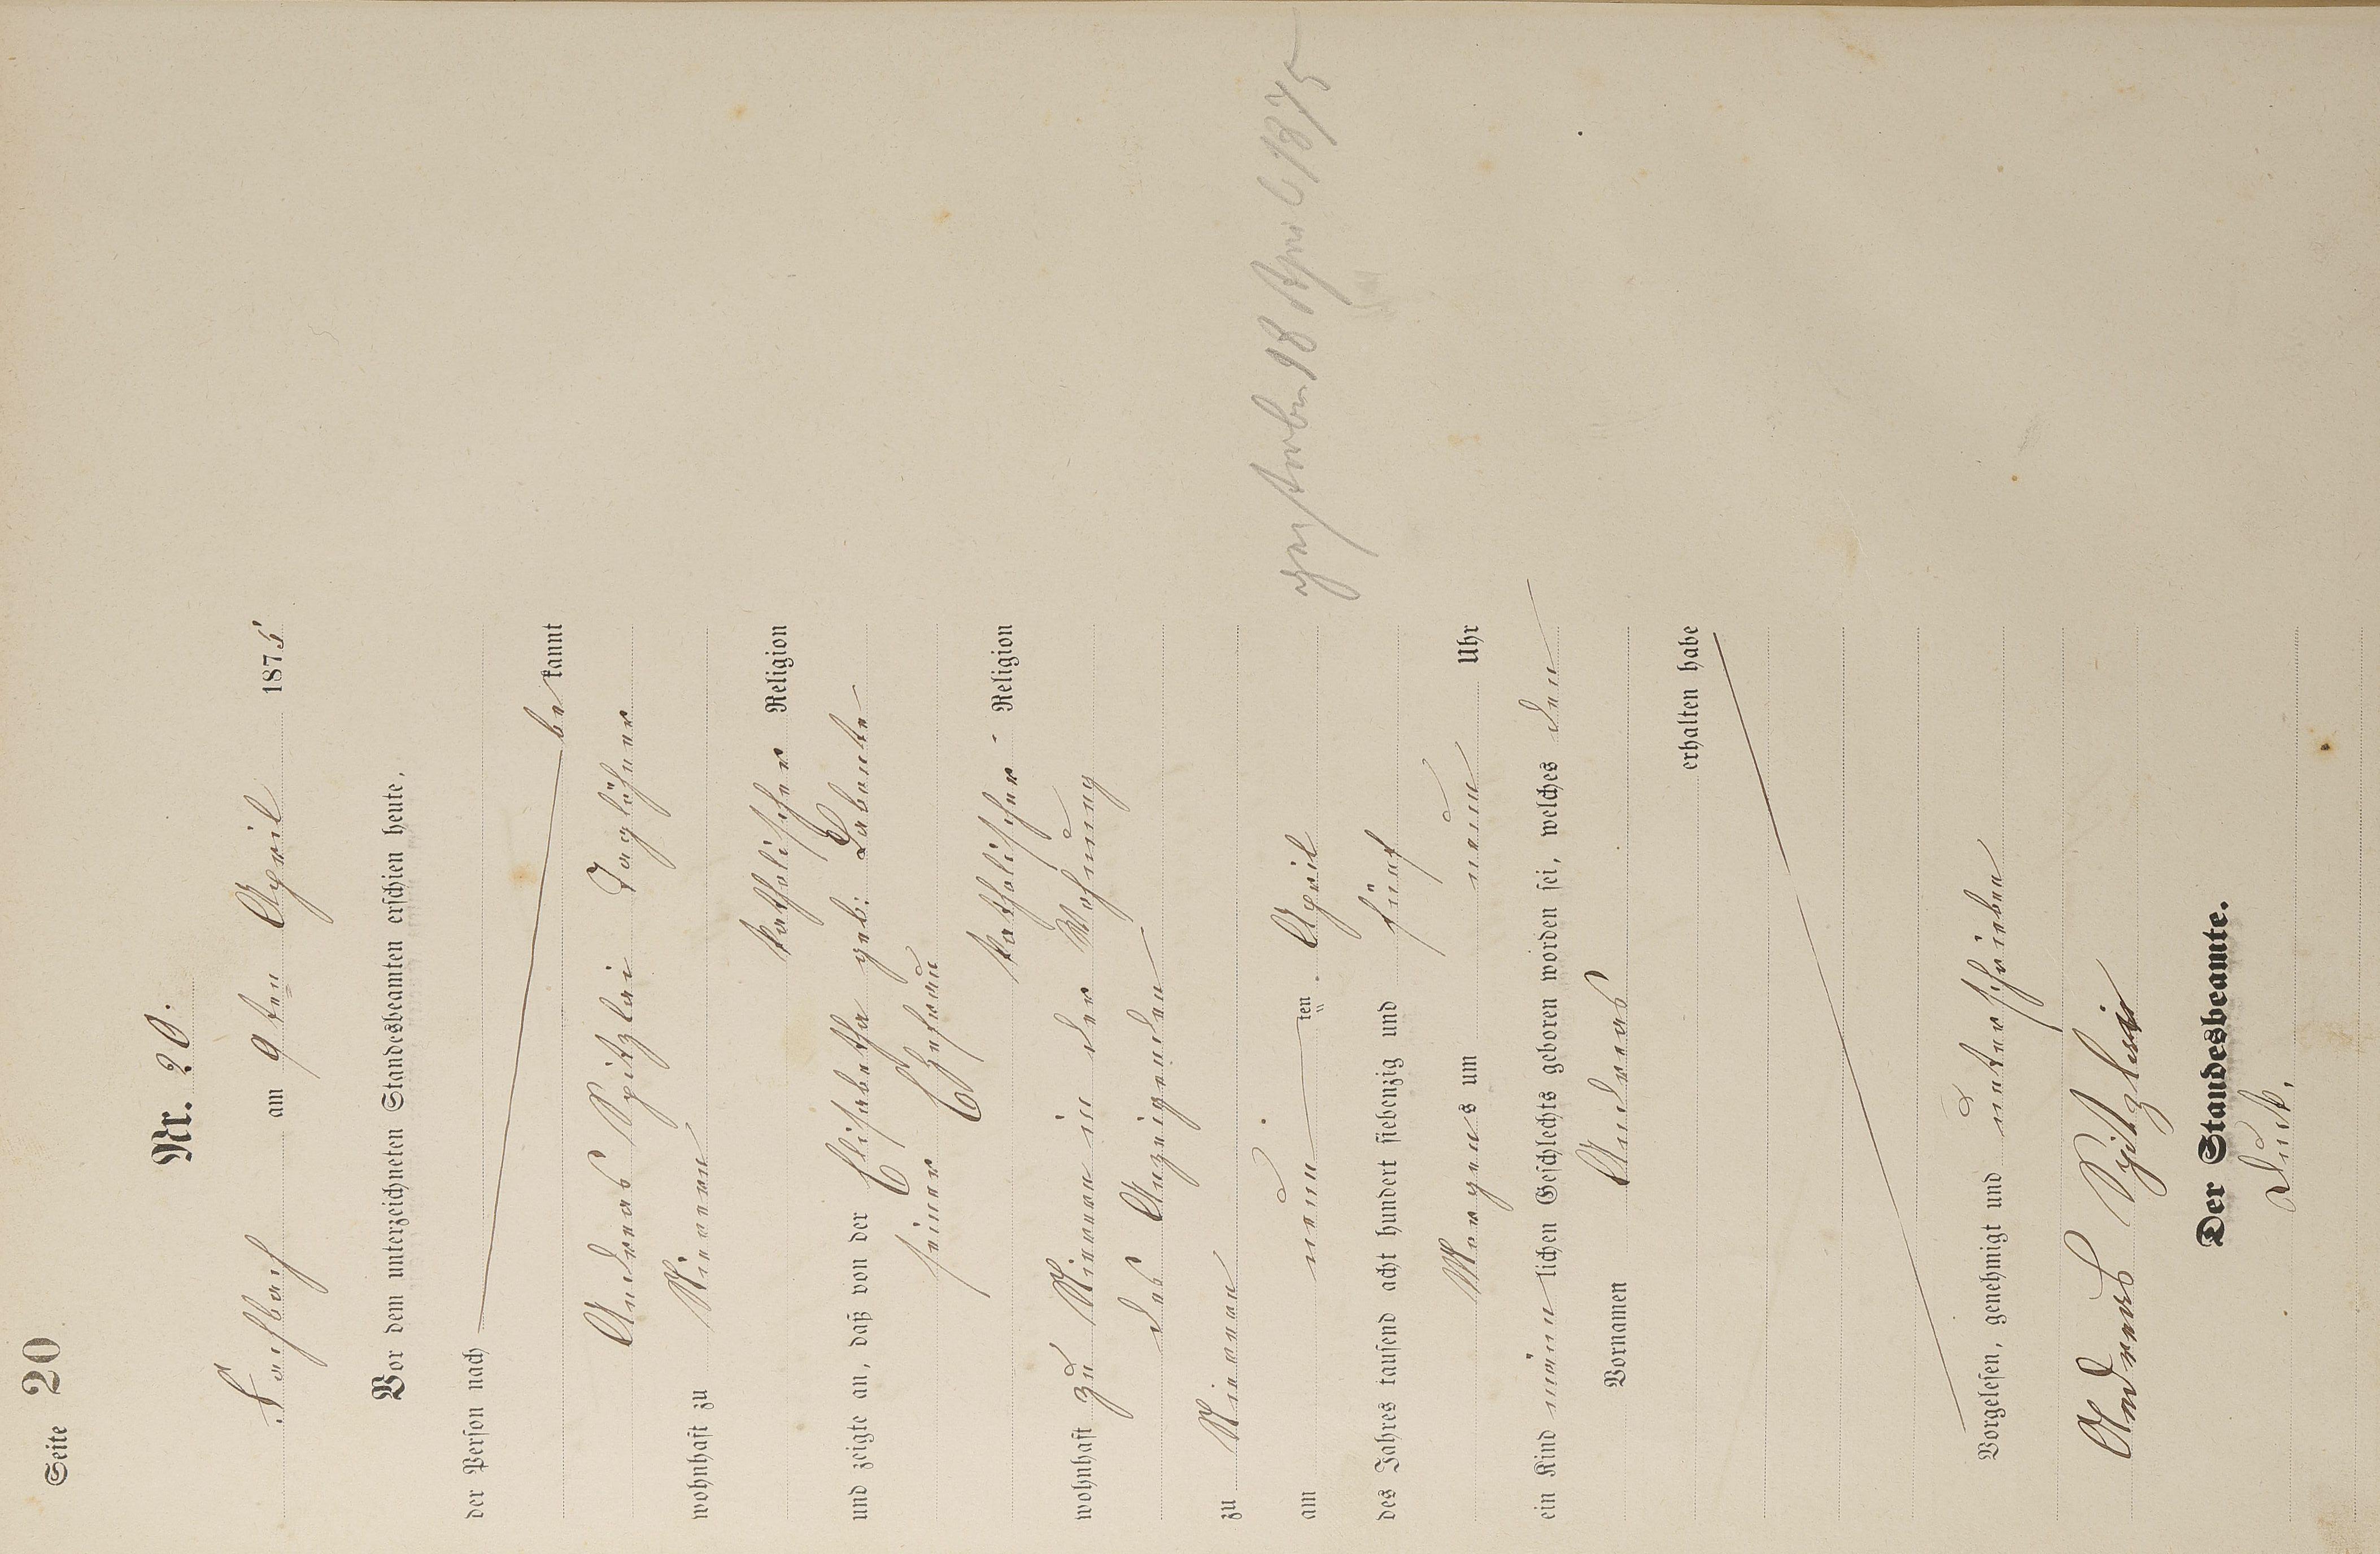 Seite 20
Nr. 20.
Fachbach am 9ten April 1875
Vor dem unterzeichneten Standesbeamten erschien heute,
der Person nach
bekannt
Andreas Spitzlei Taglöhner
wohnhaft zu Nievern
katholischer Religion
und zeigte an, daß von der Elisabetha geb:
seiner Ehefrau
katholischer Religion
wohnhaft zu Nievern in der Wohnung
des Anzeigenden
zu Nievern
am neun ten April
des Jahres tausend acht hundert siebenzig und fünf
Morgens um neun Uhr
ein Kind männlichen Geschlechts geboren worden sei, welches den
Vornamen Andreas
erhalten habe
Vorgelesen, genehmigt und unterschrieben
Andreas
Der Standesbeamte.
gestorben 18 April 1875